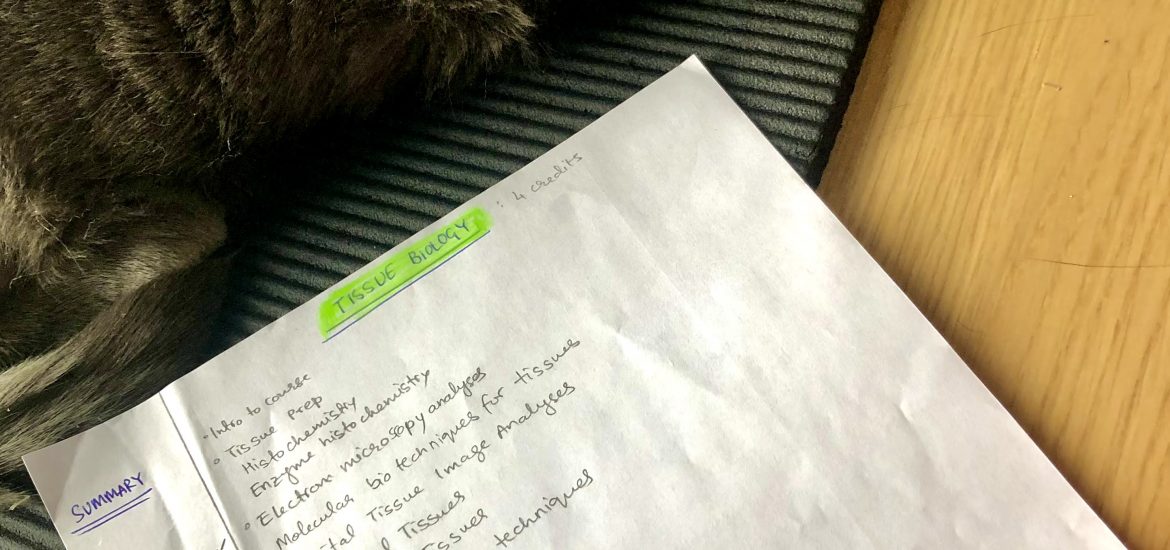 TISSUE BIOLOGY : 4 credits
• Intro to course
• Tissue Prep
Histochemistry
Enzyme histochemistry
• Electron microscopy analyses
Molecular bio techniques for tissues
ital Tissue Image Analyses
Tissues
issues
techniques
SUMMARY